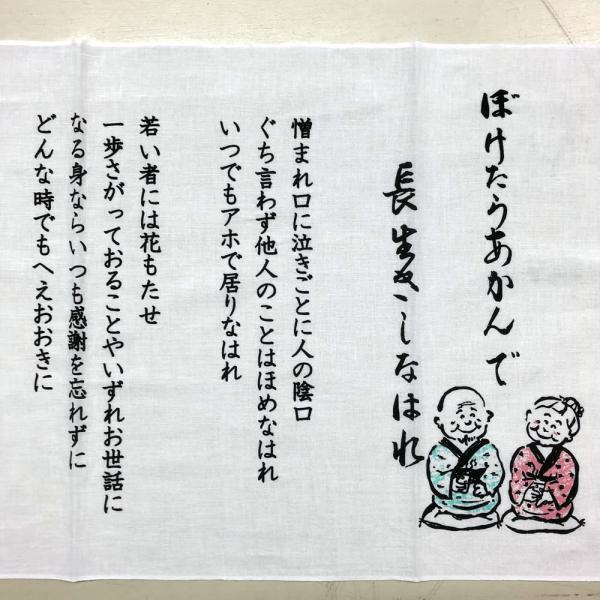 ぼけたらあかんで
長生きしなはれ
憎まれ口に泣きごとに人の陰口
ぐち言わず他人のことはほめなはれ
いつでもアホで居りなはれ
若い者には花もたせ
一歩さがっておることやいずれお世話に
なる身ならいつも感謝を忘れずに
どんな時でもへえおおきに